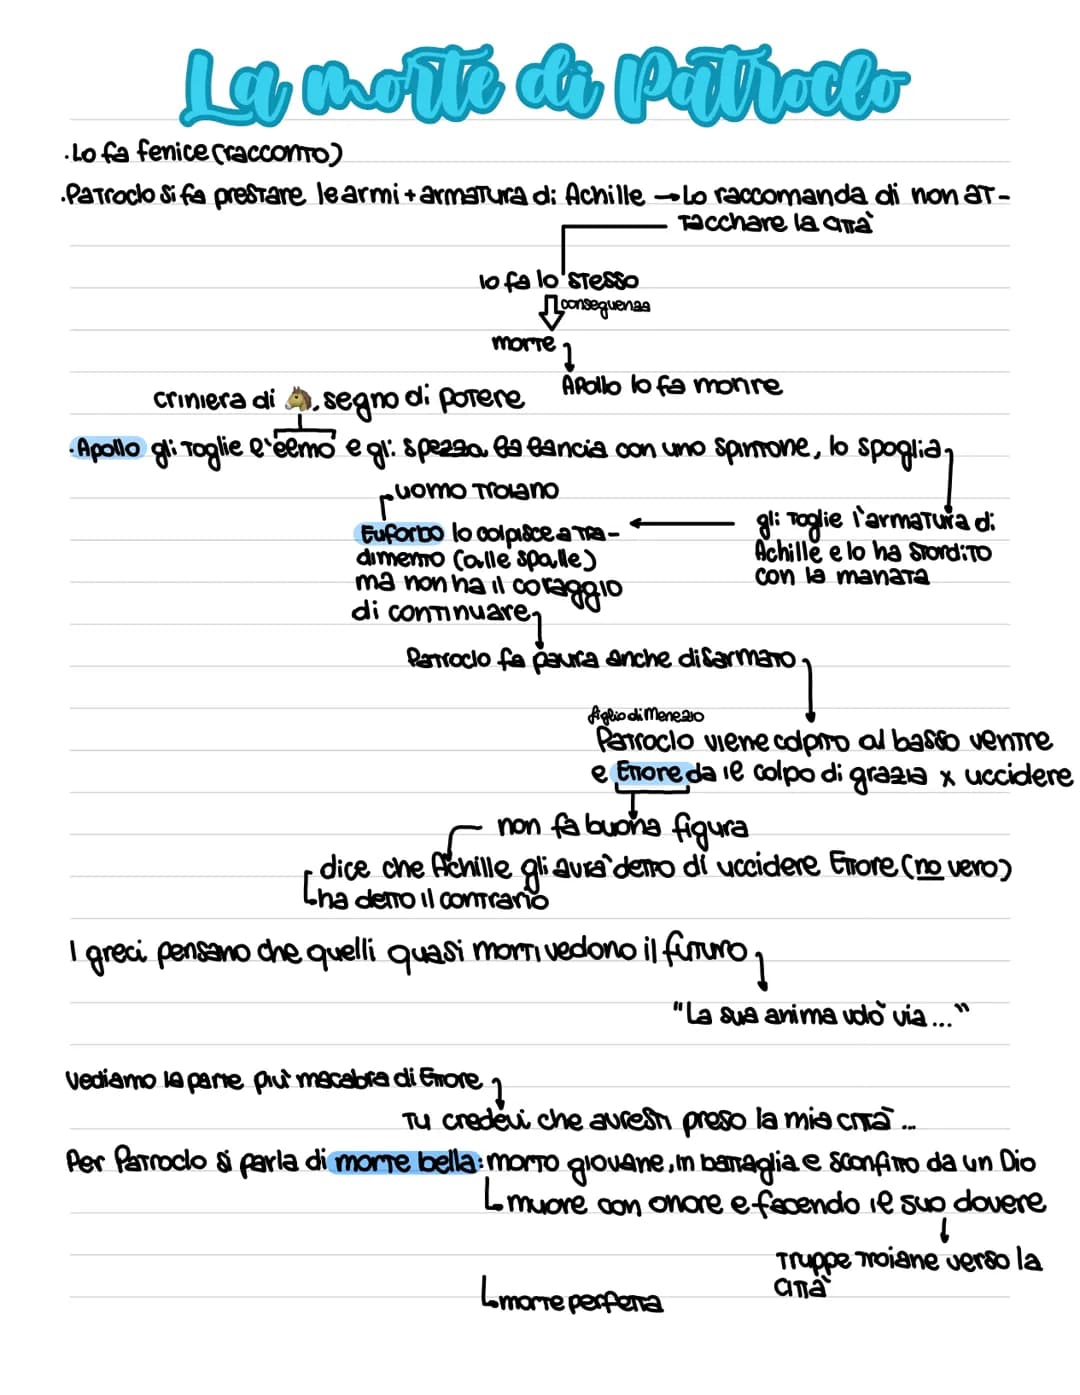 La morte di Patroclo
·Lo fa fenice (racconto)
·Patroclo si fa prestare le armi + armatura di Achille → Lo raccomanda di non at-
taccare la città
lo fa lo stesso
conseguenza
morte
Apollo lo fa morire
criniera di 🐴, segno di potere
·Apollo gli toglie l'elmo e gli spezza la lancia con uno spintone, lo spoglia
uomo troiano
Euforbo lo colpisce a tra-
dimento (alle spalle)
ma non ha il coraggio
di continuare
gli toglie l'armatura di
Achille e lo ha stordito
con la manata
Patroclo fa paura anche disarmato
figlio di Menezio
Patroclo viene colpito al basso ventre
e Ettore da il colpo di grazia x uccidere
non fa buona figura
dice che Achille gli avrà detto di uccidere Ettore (no vero)
ha detto il contrario
I greci pensano che quelli quasi morti vedono il futuro
"La sua anima volò via..."
Vediamo la parte più macabra di Ettore
Tu credevi che avresti preso la mia città...
Per Patroclo si parla di morte bella: morto giovane, in battaglia e sconfitto da un Dio
muore con onore e facendo il suo dovere
truppe troiane verso la
città
morte perfetta